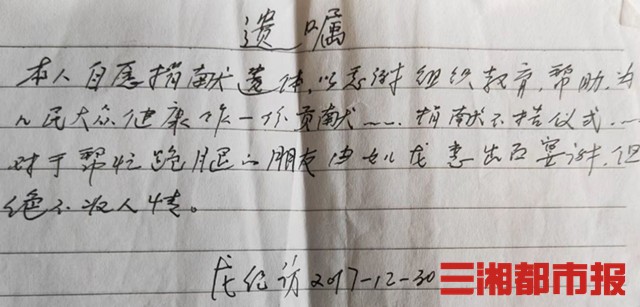 遗嘱
本人自愿捐献遗体,以感谢组织教育,帮助,为
人民大众健康作一份贡献……捐献不搞仪式……
对于帮忙跑腿的朋友由女儿龙惠出面宴谢,但
绝不收人情。
龙纪访 2017-12-30
三湘都市报